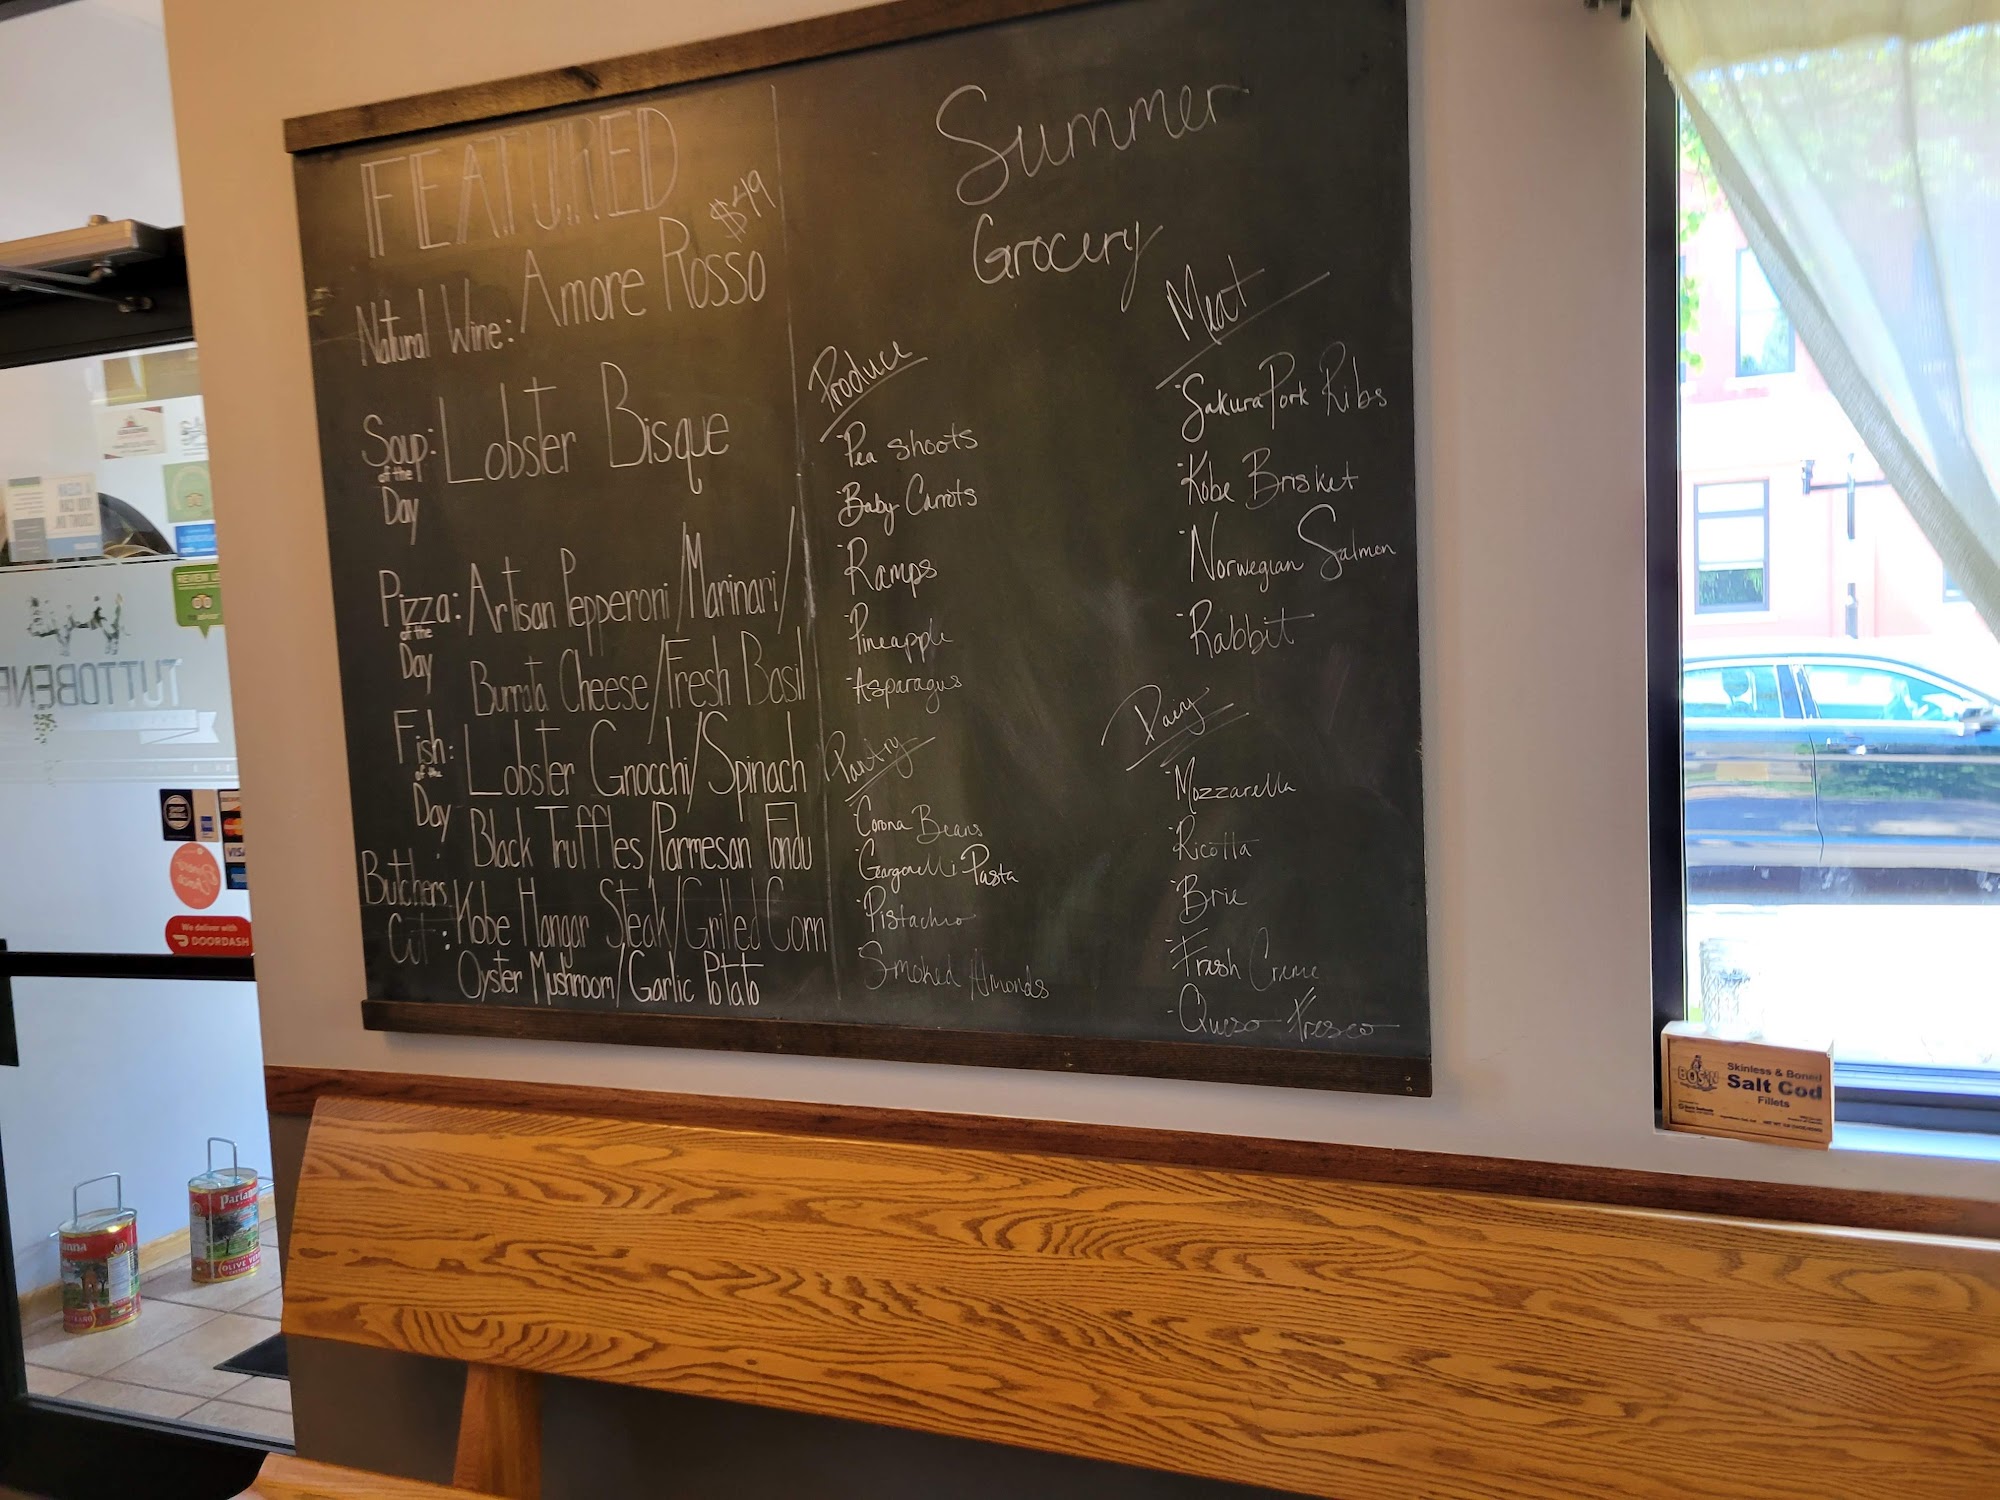 FEATURED
$49
Natural Wine: Amore Rosso
Soup: Lobster Bisque
of the
Day
Pizza: Artisan Pepperoni/Marinari/
of the
Day
Burrata Cheese/Fresh Basil
Fish: Lobster Gnocchi/Spinach
of the
Day
Black Truffles/Parmesan Fondu
Butchers Cut: Kobe Hangar Steak/Grilled Corn
Oyster Mushroom/Garlic Potato
Summer
Grocery
Produce
-Pea shoots
-Baby Carrots
-Ramps
-Pineapple
-Asparagus
Pantry
-Corona Beans
-Garganelli Pasta
-Pistachio
-Smoked Almonds
Meat
-Sakura Pork Ribs
-Kobe Brisket
-Norwegian Salmon
-Rabbit
Dairy
-Mozzarella
-Ricotta
-Brie
-Fresh Creme
-Queso Fresco
BOS'N
Skinless & Boned
Salt Cod
Fillets
REVIEW US
TUTTOBENE
VISA
We deliver with
DOORDASH
Partanna
OLIVE
anna